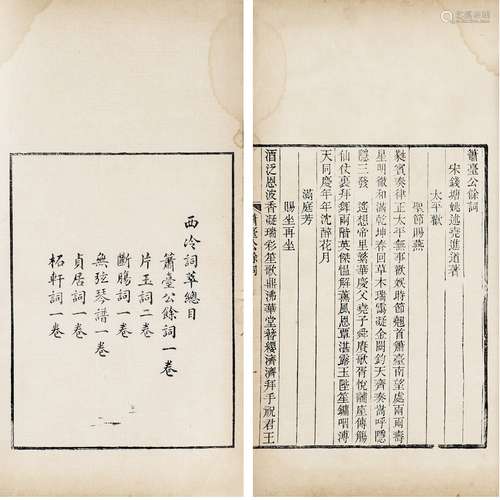 西泠詞萃總目
簫臺公餘詞一卷
片玉詞二卷
斷腸詞一卷
無弦琴譜一卷
貞居詞一卷
柘軒詞一卷
簫臺公餘詞
宋錢塘姚述堯進道著
太平歡
聖節賜燕
蕤賓奏律正太平無事歡娛時節翹首簫臺南望處兩兩壽
星明徹和滿乾坤春回草木瑞靄凝金闕鈞天齊奏嵩呼隱
隱三發 遙想帝里繁華慶父堯子舜賡歌胥悅黼座傳觴
仙仗裏拜舞兩階英傑慍解薰風恩覃湛露玉陛笙鏞咽溥
天同慶年年沈醉花月
滿庭芳
賜坐再坐
酒泛恩波香凝瑞彩笙歌鼎沸華堂簪纓濟濟拜手祝君王
簫臺公餘詞